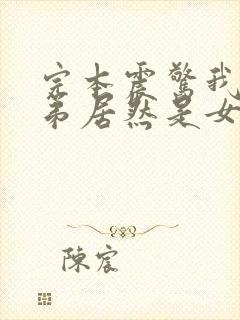 完本震驚我
弟居然是女
陳宸